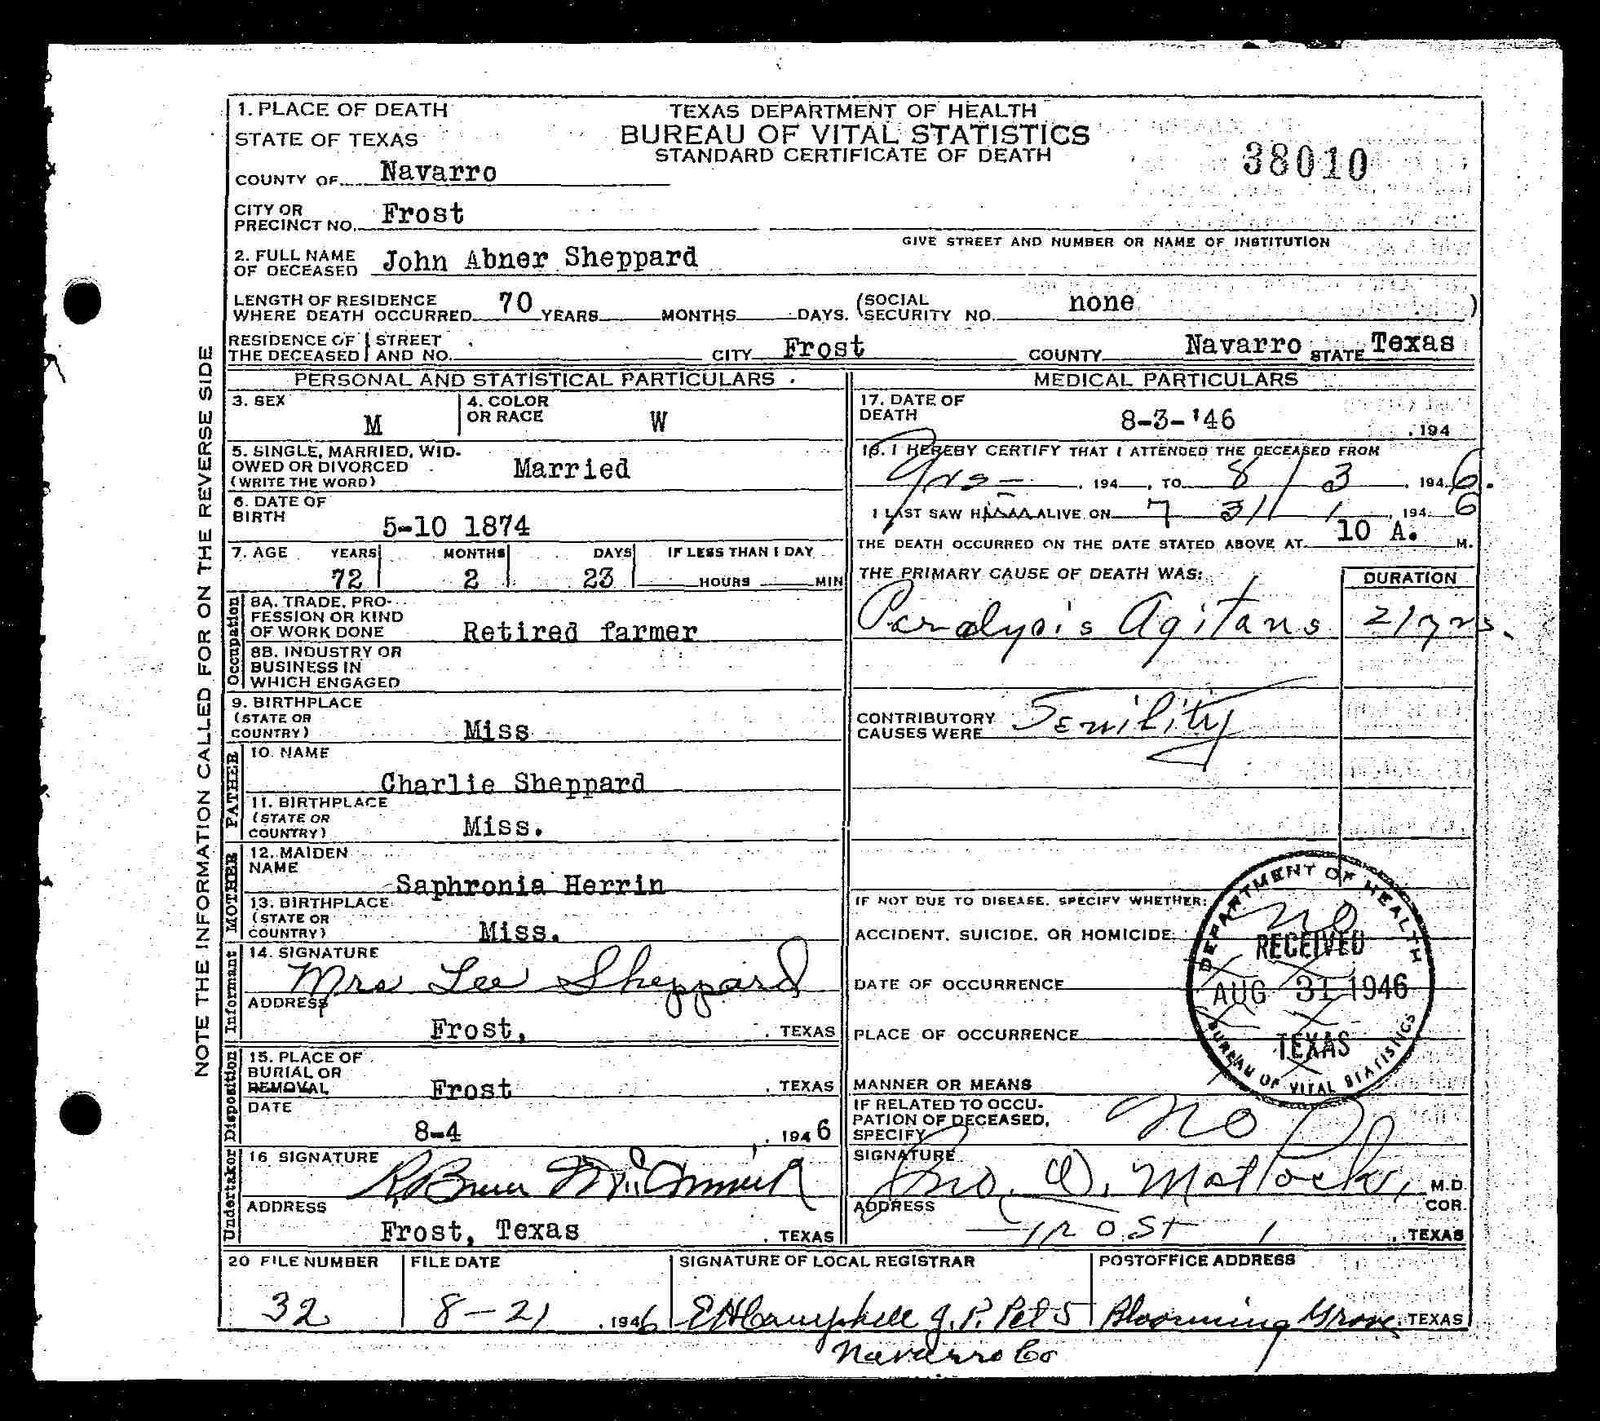 1. PLACE OF DEATH
STATE OF TEXAS
COUNTY OF Navarro
CITY OR PRECINCT NO. Frost
TEXAS DEPARTMENT OF HEALTH
BUREAU OF VITAL STATISTICS
STANDARD CERTIFICATE OF DEATH
38010
GIVE STREET AND NUMBER OR NAME OF INSTITUTION
2. FULL NAME OF DECEASED John Abner Sheppard
LENGTH OF RESIDENCE WHERE DEATH OCCURRED 70 YEARS MONTHS DAYS. (SOCIAL SECURITY NO. none )
RESIDENCE OF THE DECEASED STREET AND NO. CITY Frost COUNTY Navarro STATE Texas
NOTE THE INFORMATION CALLED FOR ON THE REVERSE SIDE
PERSONAL AND STATISTICAL PARTICULARS
3. SEX M
4. COLOR OR RACE W
5. SINGLE, MARRIED, WIDOWED OR DIVORCED (WRITE THE WORD) Married
6. DATE OF BIRTH 5-10 1874
7. AGE YEARS MONTHS DAYS IF LESS THAN 1 DAY
72 2 23 HOURS MIN
Occupation
8A. TRADE, PRO-
FESSION OR KIND
OF WORK DONE Retired farmer
8B. INDUSTRY OR
BUSINESS IN
WHICH ENGAGED
9. BIRTHPLACE
(STATE OR
COUNTRY) Miss
FATHER
10. NAME
Charlie Sheppard
11. BIRTHPLACE
(STATE OR
COUNTRY) Miss.
MOTHER
12. MAIDEN
NAME Saphronia Herrin
13. BIRTHPLACE
(STATE OR
COUNTRY) Miss.
Informant
14. SIGNATURE
Mrs Lee Sheppard
ADDRESS
Frost, . TEXAS
Disposition
15. PLACE OF
BURIAL OR
REMOVAL Frost . TEXAS
DATE
8-4 , 1946
Undertaker
16 SIGNATURE
ADDRESS
Frost, Texas . TEXAS
MEDICAL PARTICULARS
17. DATE OF DEATH 8-3-'46 , 194
18. I HEREBY CERTIFY THAT I ATTENDED THE DECEASED FROM
Yrs - , 194 , TO 8/3 , 1946.
I LAST SAW HIM ALIVE ON 7 31 , 1946
THE DEATH OCCURRED ON THE DATE STATED ABOVE AT 10 A. M.
THE PRIMARY CAUSE OF DEATH WAS: DURATION
Paralysis Agitans 21 yrs.
CONTRIBUTORY CAUSES WERE Senility
IF NOT DUE TO DISEASE, SPECIFY WHETHER:
ACCIDENT, SUICIDE, OR HOMICIDE no
DATE OF OCCURRENCE
PLACE OF OCCURRENCE
MANNER OR MEANS
DEPARTMENT OF HEALTH
RECEIVED
AUG 31 1946
TEXAS
BUREAU OF VITAL STATISTICS
IF RELATED TO OCCU-
PATION OF DECEASED,
SPECIFY no
SIGNATURE Jno. D. Matlock, M.D.
COR.
ADDRESS Frost , TEXAS
20 FILE NUMBER FILE DATE SIGNATURE OF LOCAL REGISTRAR POSTOFFICE ADDRESS
32 8-21 , 1946 E H Campbell J. P. Pct 5 Blooming Grove, TEXAS
Navarro Co